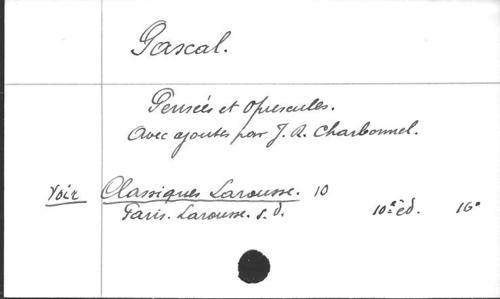 Pascal.
Pensées et Opuscules.
Avec ajoutes par J. R. Charbonnel.
Voir Classiques Larousse. 10
Paris. Larousse. s.d. 10e éd. 16°